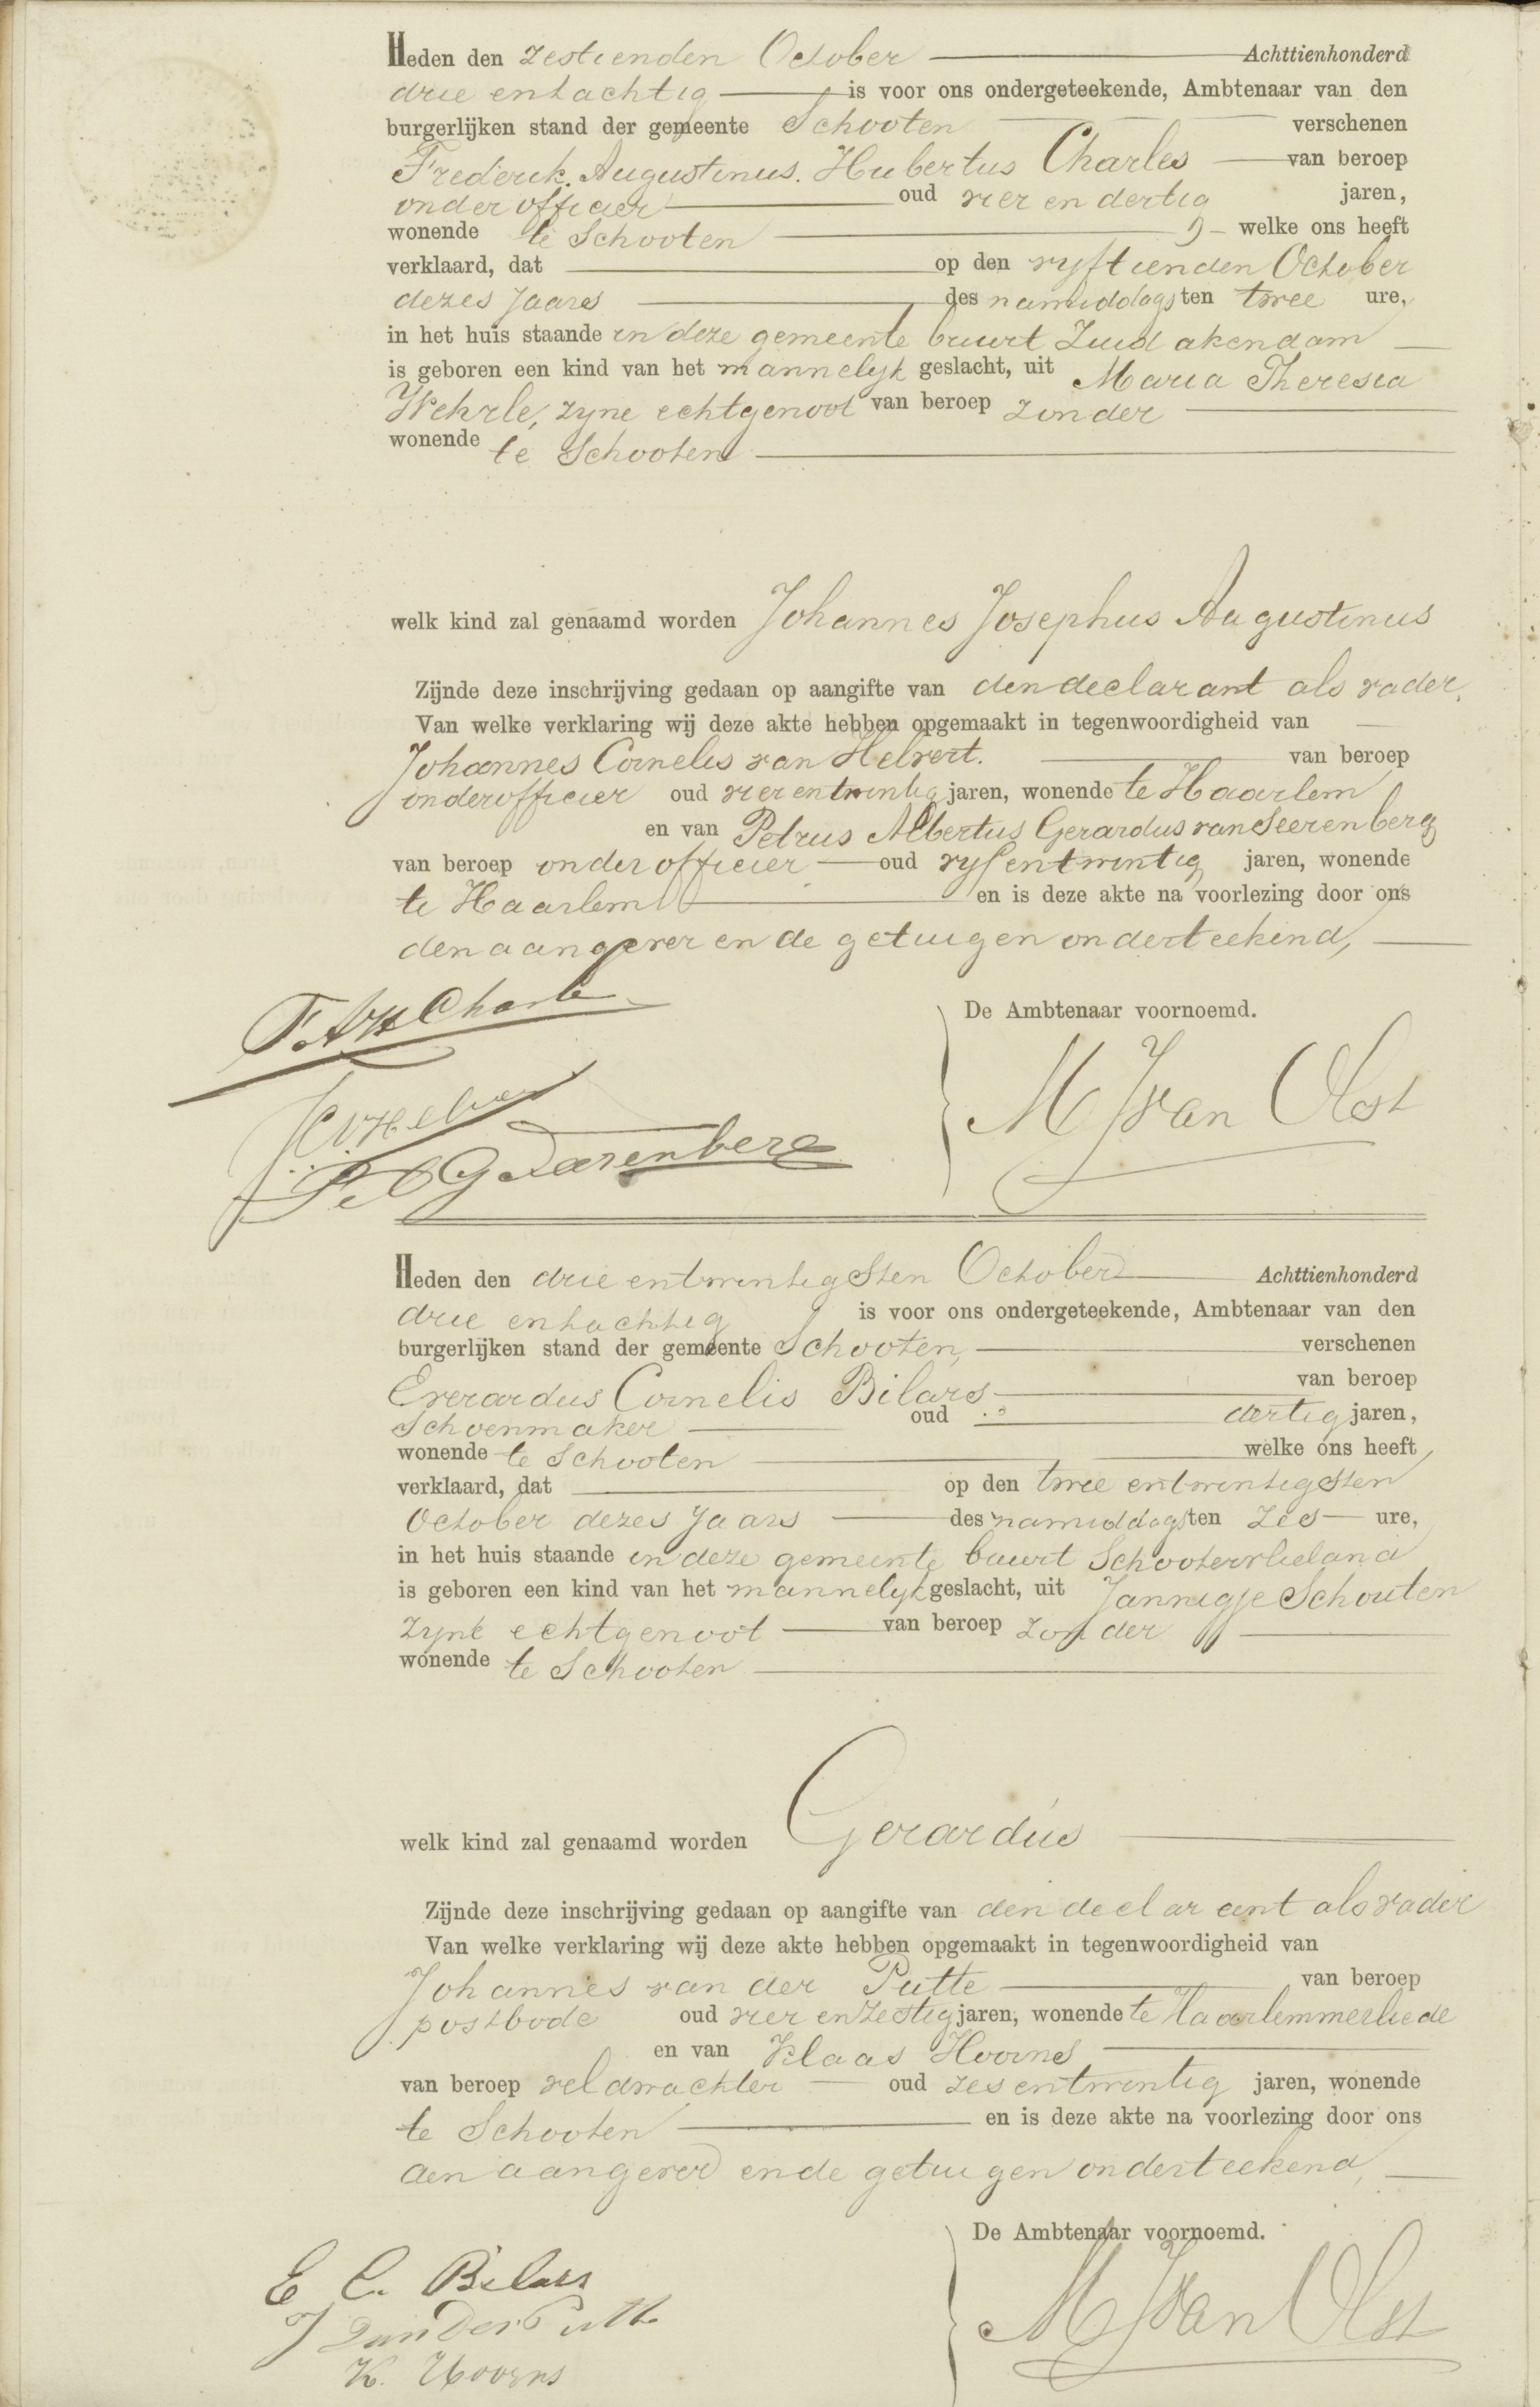 Heden den zestienden October Achttienhonderd
drie entachtig is voor ons ondergeteekende, Ambtenaar van den
burgerlijken stand der gemeente Schooten verschenen
Frederik. Augustinus. Hubertus Charles van beroep
onderofficier oud vier en dertig jaren,
wonende te Schooten welke ons heeft
verklaard, dat op den vyftienden October
dezes Jaars des namiddags ten twee ure,
in het huis staande in deze gemeente buurt Zuid akendam
is geboren een kind van het mannelyk geslacht, uit Maria Theresia
Wehrle, zyne echtgenoot van beroep zonder
wonende te Schooten
welk kind zal genaamd worden Johannes Josephus Augustinus
Zijnde deze inschrijving gedaan op aangifte van den declarant als vader,
Van welke verklaring wij deze akte hebben opgemaakt in tegenwoordigheid van
Johannes Cornelis van Helvert. van beroep
onderofficier oud vier entwintig jaren, wonende te Haarlem
en van Petrus Albertus Gerardus van Seerenberg
van beroep onderofficier oud vyf entwintig jaren, wonende
te Haarlem en is deze akte na voorlezing door ons
den aangever en de getuigen onderteekend,
F.A.H. Charle
De Ambtenaar voornoemd.
M J van Olst
Heden den drie entwintigsten October Achttienhonderd
drie entachtig is voor ons ondergeteekende, Ambtenaar van den
burgerlijken stand der gemeente Schooten, verschenen
Everardus Cornelis Bilars van beroep
Schoenmaker oud dertig jaren,
wonende te Schooten welke ons heeft
verklaard, dat op den twee entwintigsten
October dezes Jaars des namiddags ten zes ure,
in het huis staande in deze gemeente buurt Schootervlieland
is geboren een kind van het mannelyk geslacht, uit Jannigje Schouten
zyne echtgenoot van beroep zonder
wonende te Schooten
welk kind zal genaamd worden Gerardus
Zijnde deze inschrijving gedaan op aangifte van den declarant als vader
Van welke verklaring wij deze akte hebben opgemaakt in tegenwoordigheid van
Johannes van der Putte van beroep
postbode oud vier enzestig jaren, wonende te Haarlemmerliede
en van Klaas Hoorns
van beroep veldwachter oud zes entwintig jaren, wonende
te Schooten en is deze akte na voorlezing door ons
den aangever ende getuigen onderteekend,
De Ambtenaar voornoemd.
E C. Bilars
J van Der Putte
K. Hoorns
M J van Olst